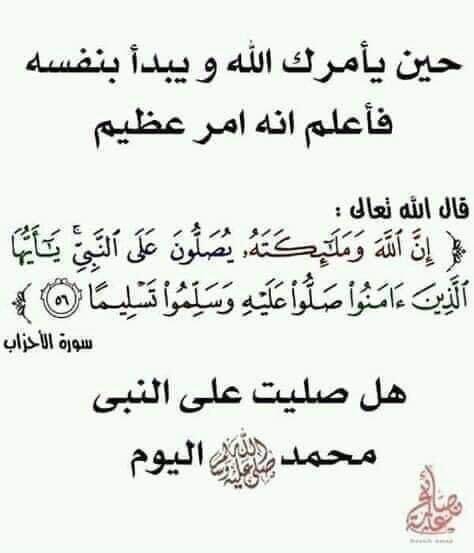 حين يأمرك الله و يبدأ بنفسه
فأعلم انه امر عظيم
قال الله تعالى :
﴿ إِنَّ ٱللَّهَ وَمَلَٰٓئِكَتَهُۥ يُصَلُّونَ عَلَى ٱلنَّبِيِّۚ يَٰٓأَيُّهَا
ٱلَّذِينَ ءَامَنُواْ صَلُّواْ عَلَيْهِ وَسَلِّمُواْ تَسْلِيمًا ٥٦ ﴾
سورة الأحزاب
هل صليت على النبى
محمد ﷺ اليوم